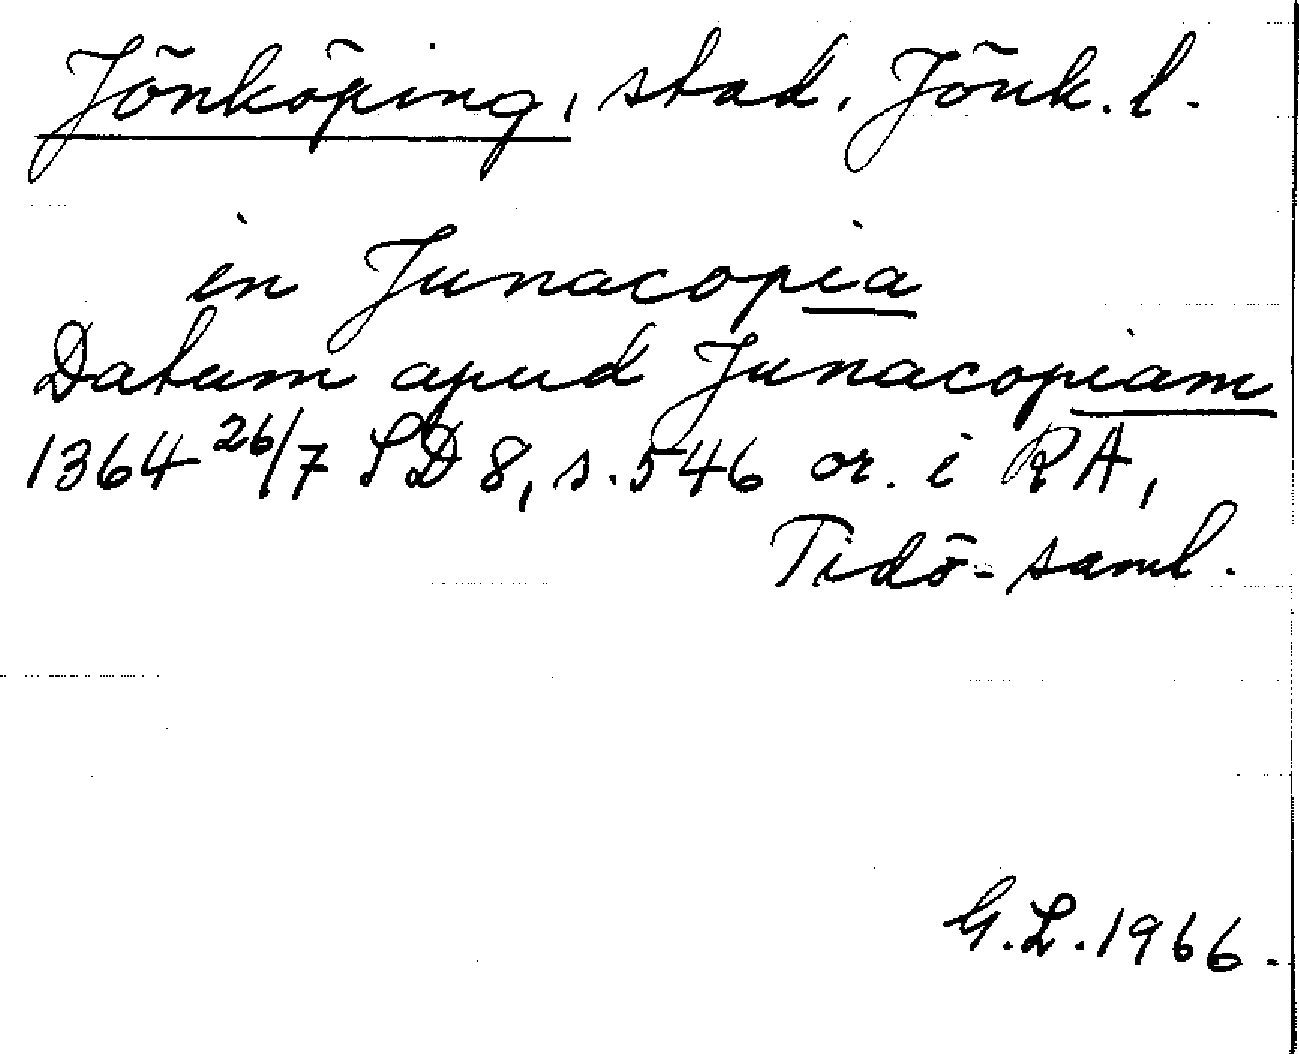 Jönköping, stad. Jönk. l.
in Junacopia
Datum apud Junacopiam
1364 26/7 SD 8, s. 546 or. i RA,
Tidö-saml.
G.L. 1966.